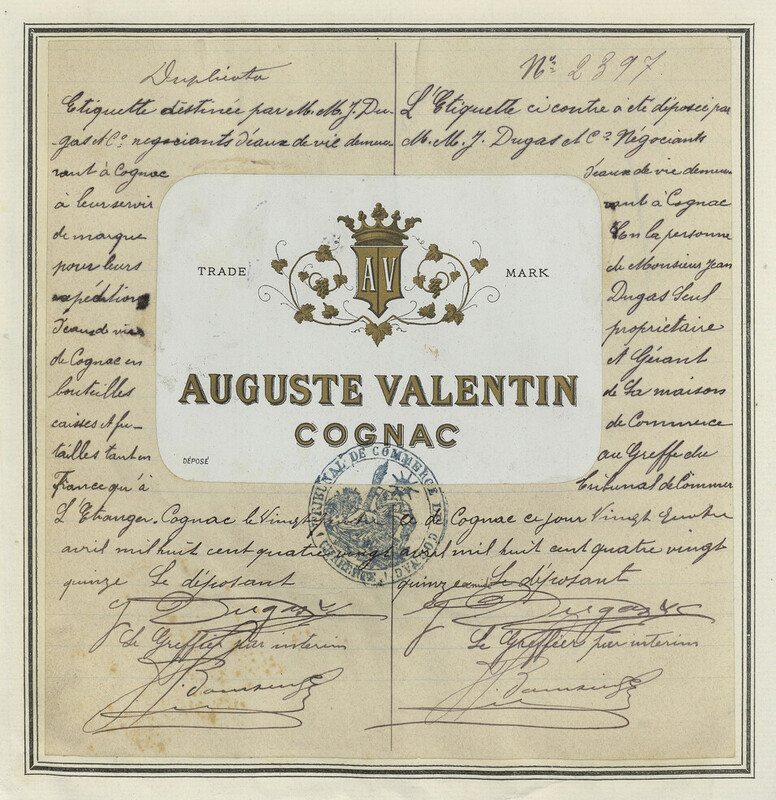 Duplicata
Etiquette déstinée par M. M. J. Du-
-gas & Co negociants d'eaux de vie demeu-
rant à Cognac
à leur servir
de marque
pour leurs
expéditions
d'eaux de vie
de Cognac en
bouteilles
caisses & fu-
tailles tant en
France qu'à
L'Etranger. Cognac le Vingt quatre
avril mil huit cent quatre vingt
quinze Le déposant
J Dugas & Co
Le Greffier par interim
No 2397.
L'Etiquette ci contre a été déposée par
M. M. J. Dugas & Co Négociants
d'eaux de vie demeu-
rant à Cognac
En la personne
de Monsieur Jean
Dugas Seul
propriétaire
& Gérant
de Sa maison
de Commerce
au Greffe du
Tribunal de Commer
ce de Cognac ce jour Vingt quatre
avril mil huit cent quatre vingt
quinze Le déposant
J Dugas & Co
Le Greffier par interim
TRADE AV MARK
AUGUSTE VALENTIN
COGNAC
DÉPOSÉ
TRIBUNAL DE COMMERCE DE COGNAC